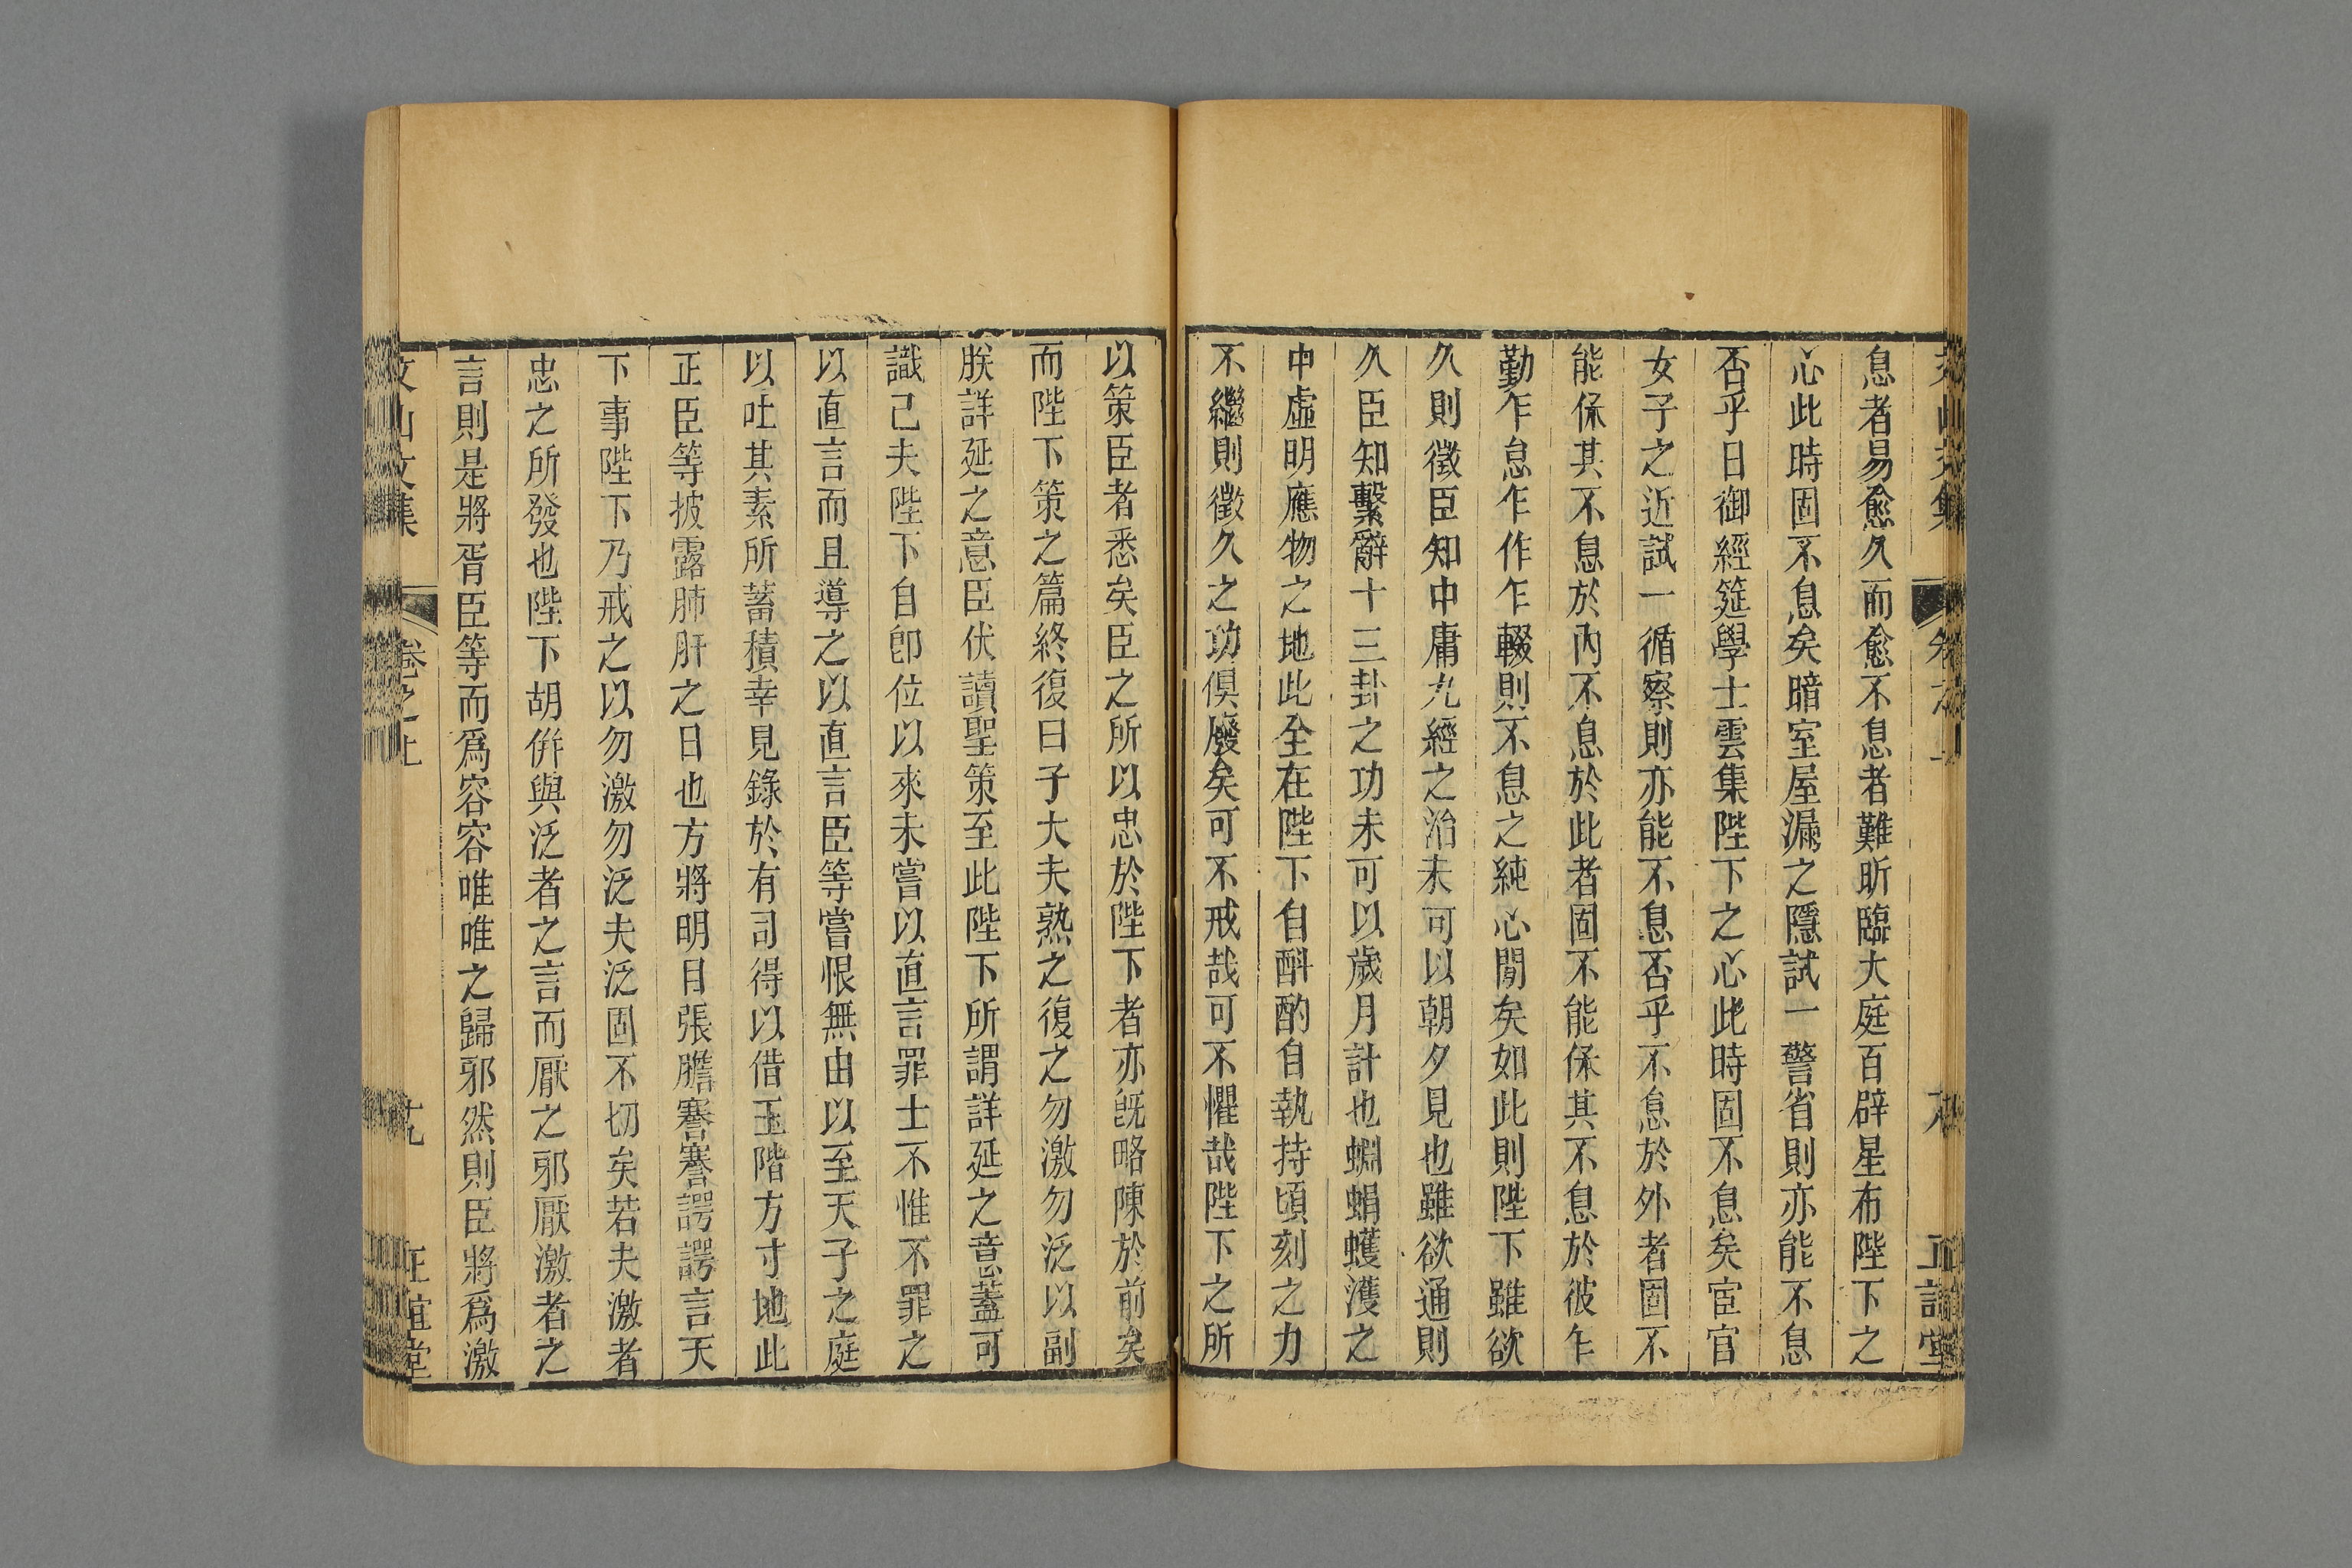 息者易愈久而愈不息者難昕臨大庭百辟星布陛下之
心此時固不息矣暗室屋漏之隱試一警省則亦能不息
否乎日御經筵學士雲集陛下之心此時固不息矣宦官
女子之近試一循察則亦能不息否乎不息於外者固不
能保其不息於內不息於此者固不能保其不息於彼乍
勤乍怠乍作乍輟則不息之純心間矣如此則陛下雖欲
久則徵臣知中庸九經之治未可以朝夕見也雖欲通則
久臣知繫辭十三卦之功未可以歲月計也蜵蜎蠖濩之
中虛明應物之地此全在陛下自斟酌自執持頃刻之力
不繼則徵久之功俱廢矣可不戒哉可不懼哉陛下之所
以策臣者悉矣臣之所以忠於陛下者亦旣略陳於前矣
而陛下策之篇終復曰子大夫熟之復之勿激勿泛以副
朕詳延之意臣伏讀聖策至此陛下所謂詳延之意蓋可
識己夫陛下自卽位以來未嘗以直言罪士不惟不罪之
以直言而且導之以直言臣等嘗恨無由以至天子之庭
以吐其素所蓄積幸見錄於有司得以借玉階方寸地此
正臣等披露肺肝之日也方將明目張膽謇謇諤諤言天
下事陛下乃戒之以勿激勿泛夫泛固不切矣若夫激者
忠之所發也陛下胡倂與泛者之言而厭之邪厭激者之
言則是將胥臣等而爲容容唯唯之歸邪然則臣將爲激
文山文集 卷之上 正誼堂